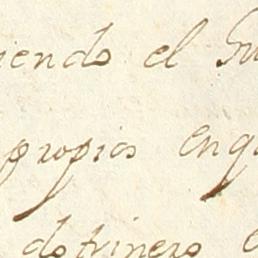 iendo el Gu
propios enq
dotrinero